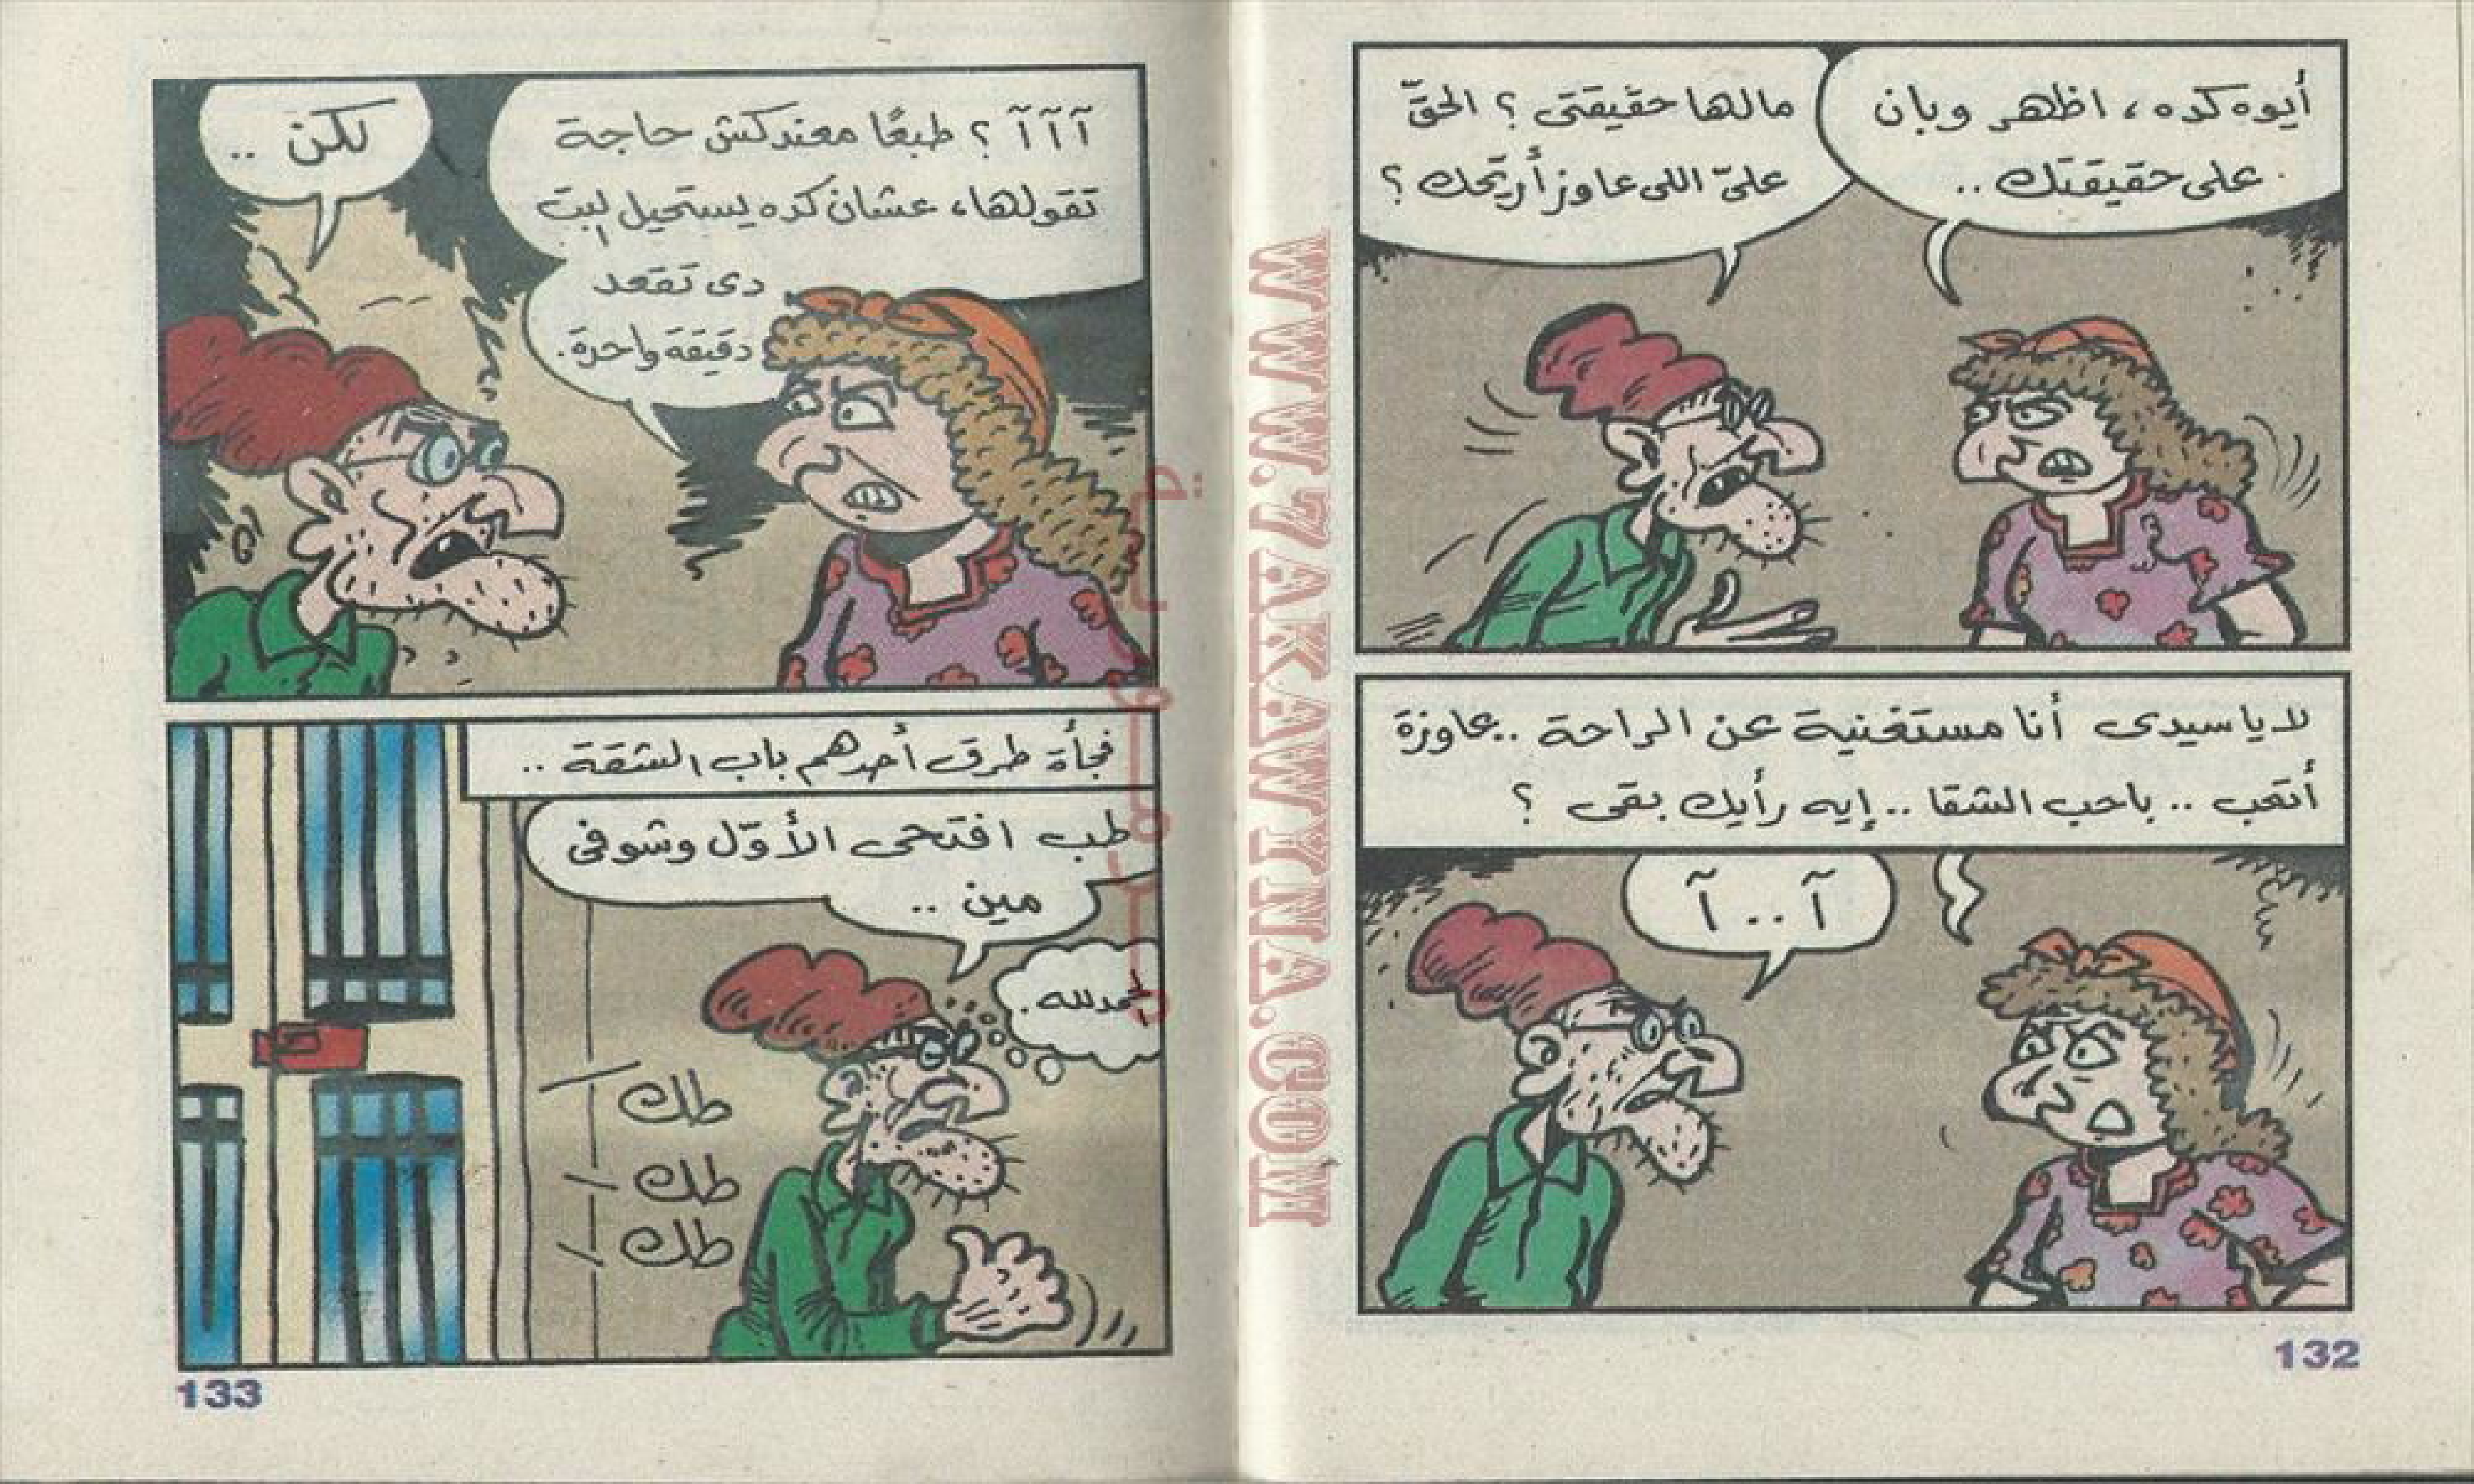 أيوه كده، اظهر وبان
على حقيقتك ..
مالها حقيقتى ؟ الحقّ
علىّ اللى عاوز أريّحك ؟
لا يا سيدى أنا مستغنية عن الراحة .. عاوزة
أتعب .. باحب الشقا .. إيه رأيك بقى ؟
آ .. آ
132
آآآ ؟ طبعًا معندكش حاجة
تقولها، عشان كده يستحيل البت
دى تقعد
دقيقة واحدة.
لكن ..
فجأة طرق أحدهم باب الشقة ..
طب افتحى الأوّل وشوفى
مين ..
الحمد لله.
طك
طك
طك
133
WWW.ZAKAWYANA.COM